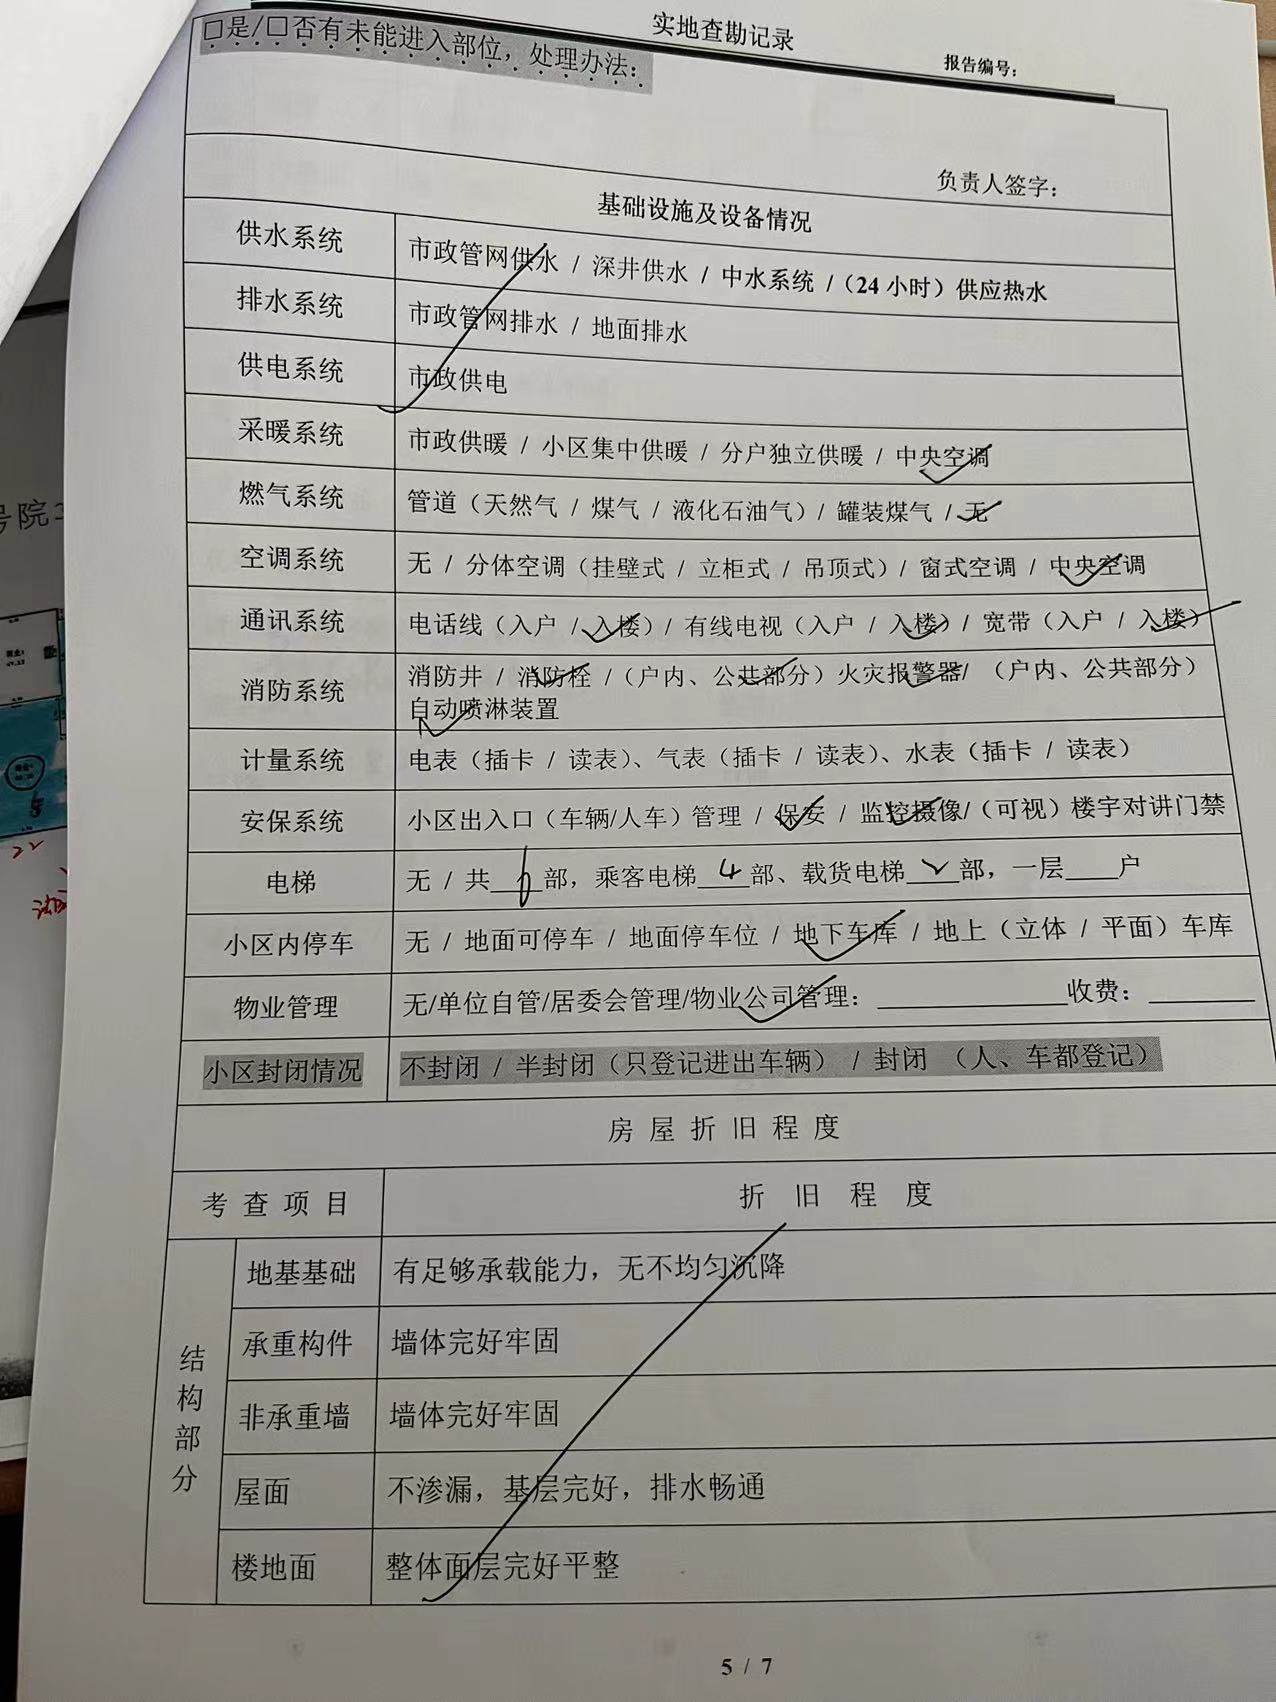 实地查勘记录
报告编号：
□是/□否有未能进入部位，处理办法：
负责人签字：
基础设施及设备情况
供水系统 市政管网供水 / 深井供水 / 中水系统 /（24 小时）供应热水
排水系统 市政管网排水 / 地面排水
供电系统 市政供电
采暖系统 市政供暖 / 小区集中供暖 / 分户独立供暖 / 中央空调
燃气系统 管道（天然气 / 煤气 / 液化石油气）/ 罐装煤气 / 无
空调系统 无 / 分体空调（挂壁式 / 立柜式 / 吊顶式）/ 窗式空调 / 中央空调
通讯系统 电话线（入户 / 入楼）/ 有线电视（入户 / 入楼）/ 宽带（入户 / 入楼）
消防系统 消防井 / 消防栓 /（户内、公共部分）火灾报警器/ （户内、公共部分）
自动喷淋装置
计量系统 电表（插卡 / 读表）、气表（插卡 / 读表）、水表（插卡 / 读表）
安保系统 小区出入口（车辆/人车）管理 / 保安 / 监控摄像/（可视）楼宇对讲门禁
电梯 无 / 共 6 部，乘客电梯 4 部、载货电梯 2 部，一层____户
小区内停车 无 / 地面可停车 / 地面停车位 / 地下车库 / 地上（立体 / 平面）车库
物业管理 无/单位自管/居委会管理/物业公司管理：______________收费：________
小区封闭情况 不封闭 / 半封闭（只登记进出车辆） / 封闭 （人、车都登记）
房屋折旧程度
考查项目 折旧程度
结构部分
地基基础 有足够承载能力，无不均匀沉降
承重构件 墙体完好牢固
非承重墙 墙体完好牢固
屋面 不渗漏，基层完好，排水畅通
楼地面 整体面层完好平整
5 / 7
号院
22